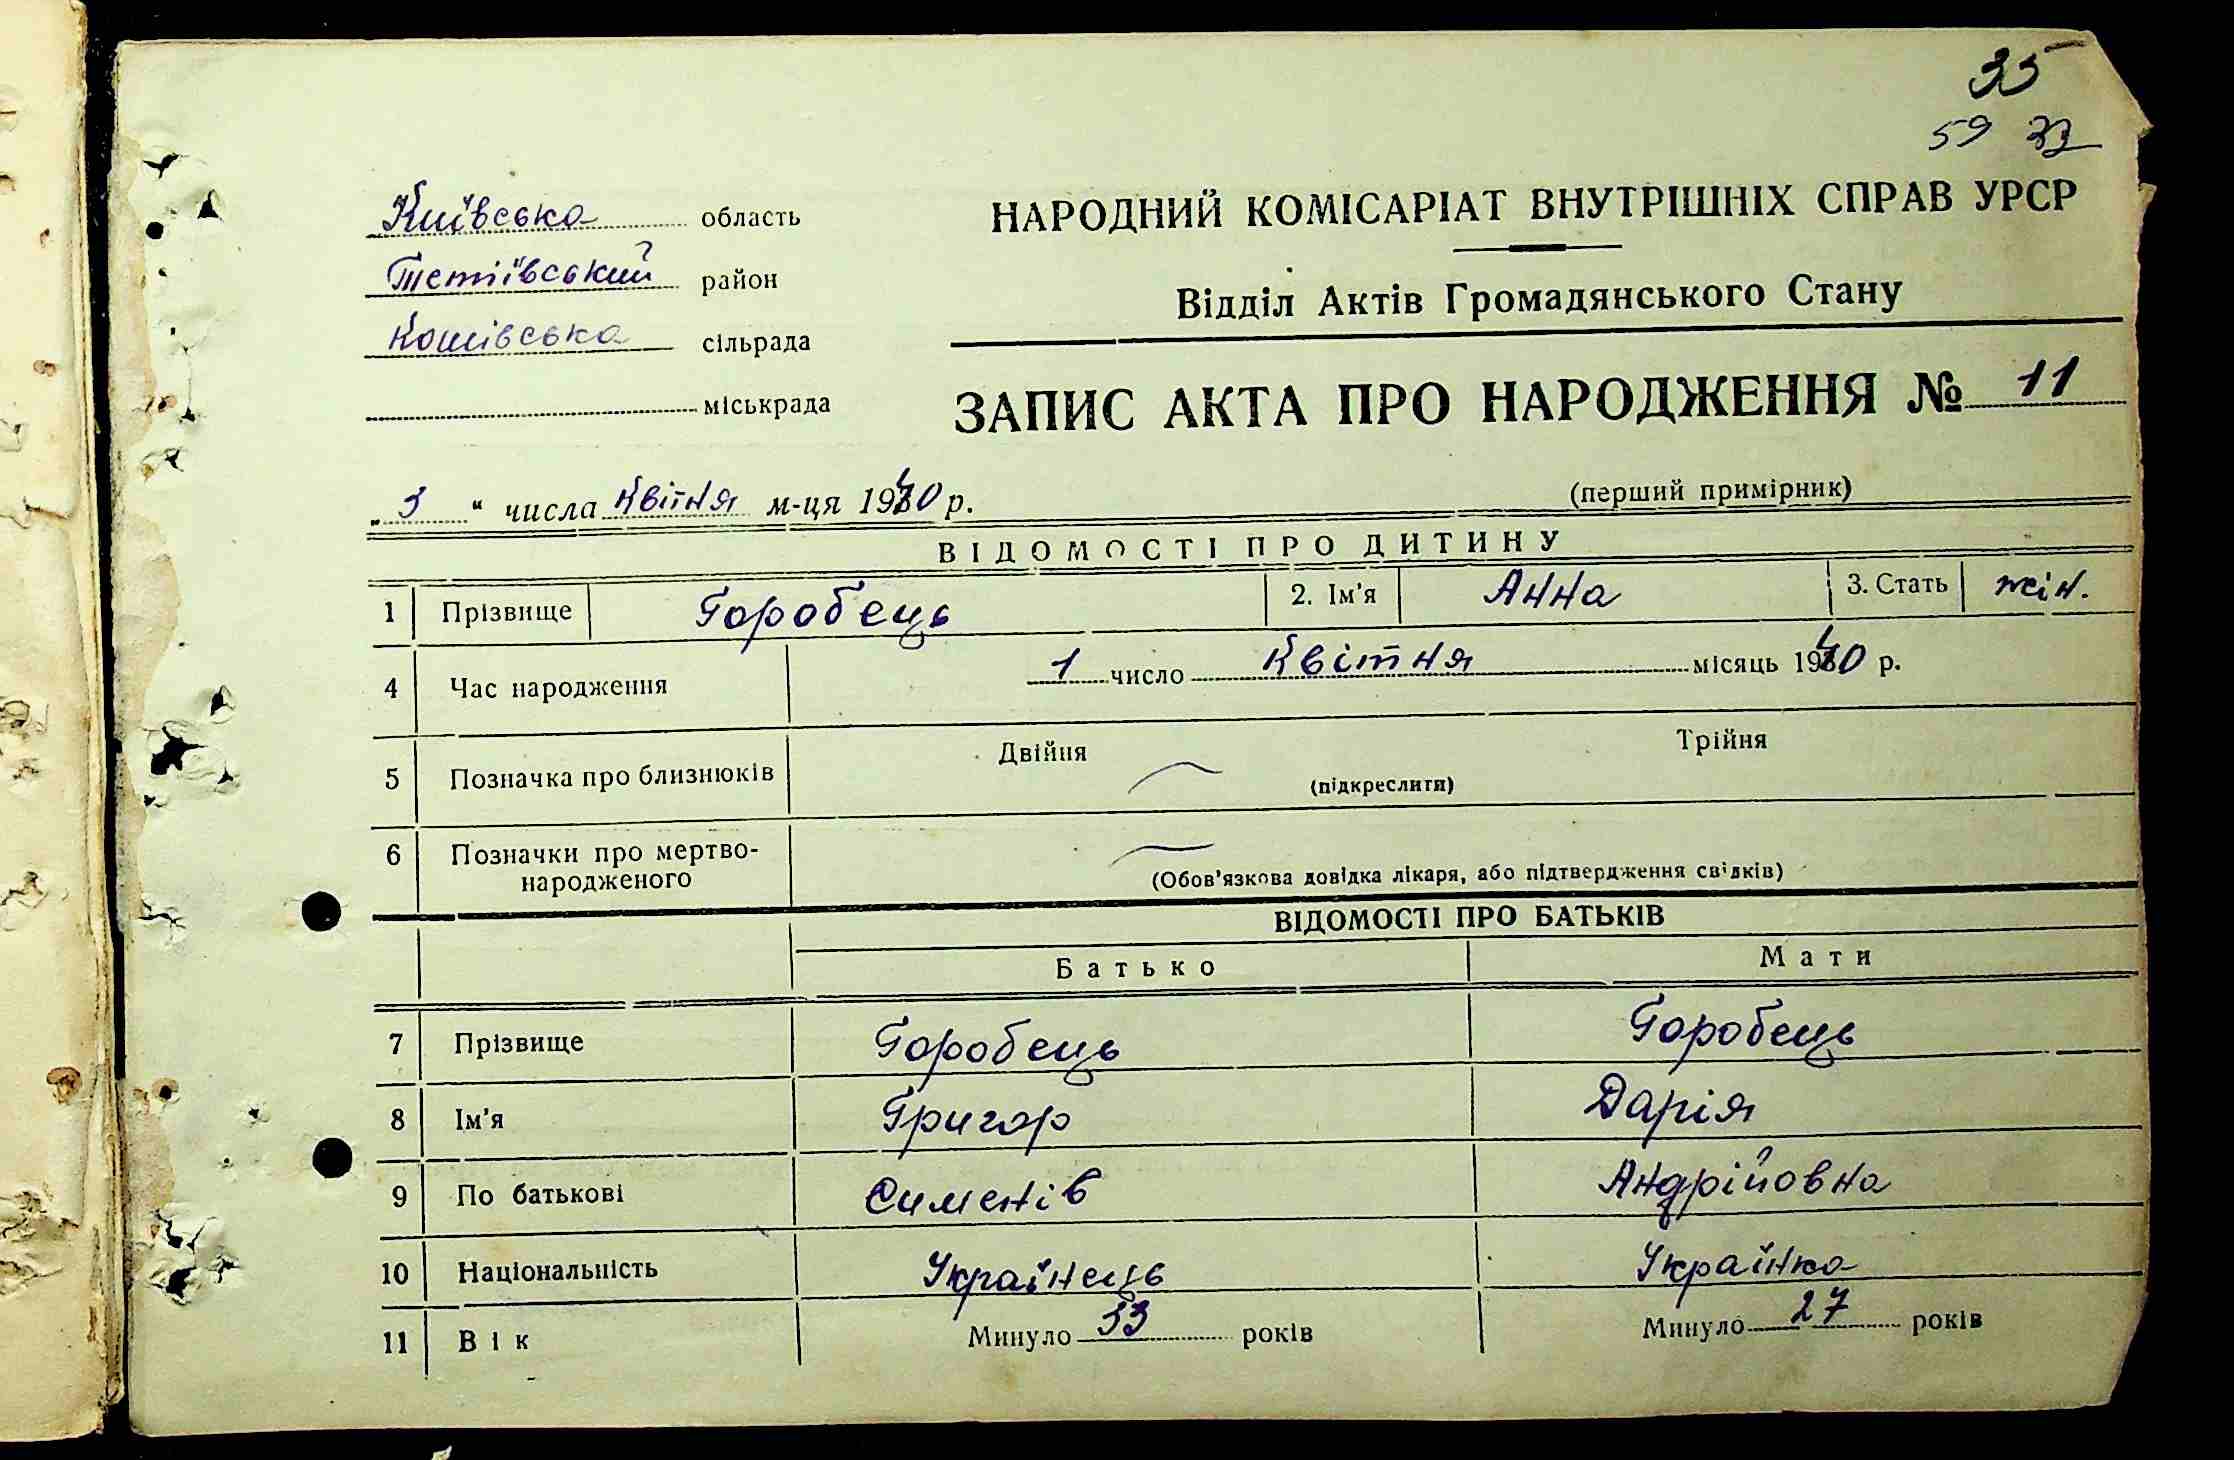 35
59 32
Київська область
Тетіївський район
Кошівська сільрада
міськрада
НАРОДНИЙ КОМІСАРІАТ ВНУТРІШНІХ СПРАВ УРСР
Відділ Актів Громадянського Стану
ЗАПИС АКТА ПРО НАРОДЖЕННЯ № 11
„ 3 “ числа Квітня м-ця 1940 р.
(перший примірник)
ВІДОМОСТІ ПРО ДИТИНУ
1 Прізвище Горобець 2. Ім'я Анна 3. Стать жін.
4 Час народження 1 число Квітня місяць 1940 р.
5 Позначка про близнюків Двійня Трійня
(підкреслити)
6 Позначки про мертво-
народженого
(Обов'язкова довідка лікаря, або підтвердження свідків)
ВІДОМОСТІ ПРО БАТЬКІВ
Батько Мати
7 Прізвище Горобець Горобець
8 Ім'я Григор Дарія
9 По батькові Сименів Андрійовна
10 Національність Українець Українка
11 Вік Минуло 33 років Минуло 27 років